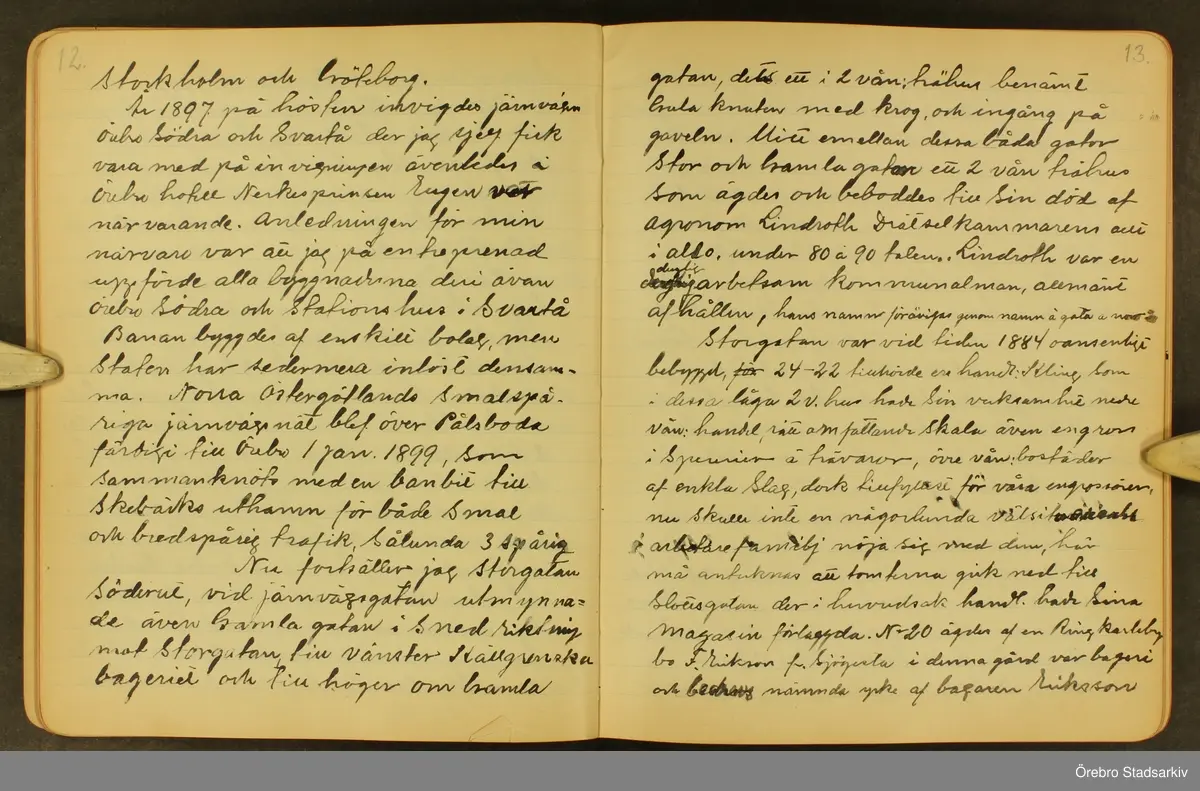 12.
Stockholm och Göteborg.
År 1897 på hösten invigdes järnvägen
Örebro Södra och Svartå der jag sjelf fick
vara med på invigningen äventedes i
Örebro hotell Nerkesprinsen Eugen var
närvarande. Anledningen för min
närvaro var att jag på entreprenad
uppförde alla byggnaderna deri även
Örebro Södra och Stationshus i Svartå
Banan byggdes af enskilt bolag, men
Staten har sedermera inlöst densam-
ma. Norra Östergötlands Smalspå-
riga järnvägsnät blef över Pålsboda
färdigt till Örebro 1 jan. 1899, som
sammanknöts med en banbit till
Skebäcks uthamn för både Smal
och bredspårig trafik, Sålunda 3 spårig
Nu fortsätter jag Storgatan
Söderut, vid järnvägsgatan utmynna=
de även Gamla gatan i Sned riktning
mot Storgatan, till vänster Källgrenska
bageriet och till höger om Gamla
13.
gatan, ett i 2 vån: trähus benämt
Gula knuten med krog, och ingång på
gaveln. Mitt emellan dessa båda gator
Stor och Gamla gatan ett 2 vån trähus
som ägdes och beboddes till Sin död af
agronom Lindroth Drätselkammarens
i aldo. under 80 à 90 talen. Lindroth var en
duglig arbetsam kommunalman, allmänt
afhållen, hans namn förevigas genom namn å gata a
Storgatan var vid tiden 1884 oansenligt
bebyggd, för 24-22 tillhörde en handl: Kling, som
i dessa låga 2 v. hus hade Sin verksamhet nedre
vån: handel, rätt omfattande skala även engros
i Specerier å trävaror, övre vån: bostäder
af enkla Slag, dock tillfyllest för våra engrossörer,
nu skulle inte en någorlunda
arbetarefamilj nöja sig med dem, här
må antecknas att tomterna gick ned till
Slottsgatan der i huvudsak handl. hade Sina
magasin förlaggda. No 20 ägdes af en Ringkarleby
bo F. Erikson f. Sjögesta i denna gård var bageri
och bedrevs nämnda yrke af bagaren Eriksson
Örebro Stadsarkiv